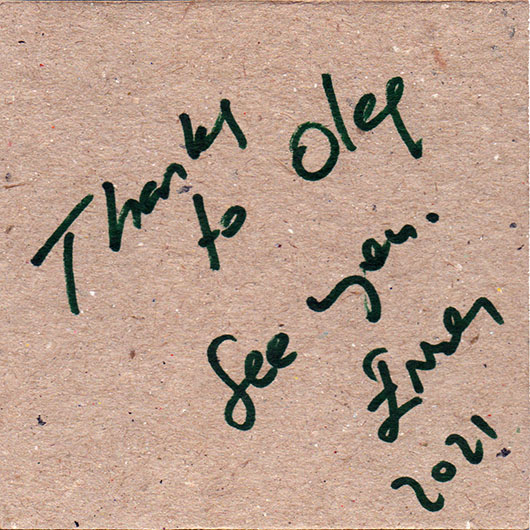 Thanks
to Oleg
See you.
2021